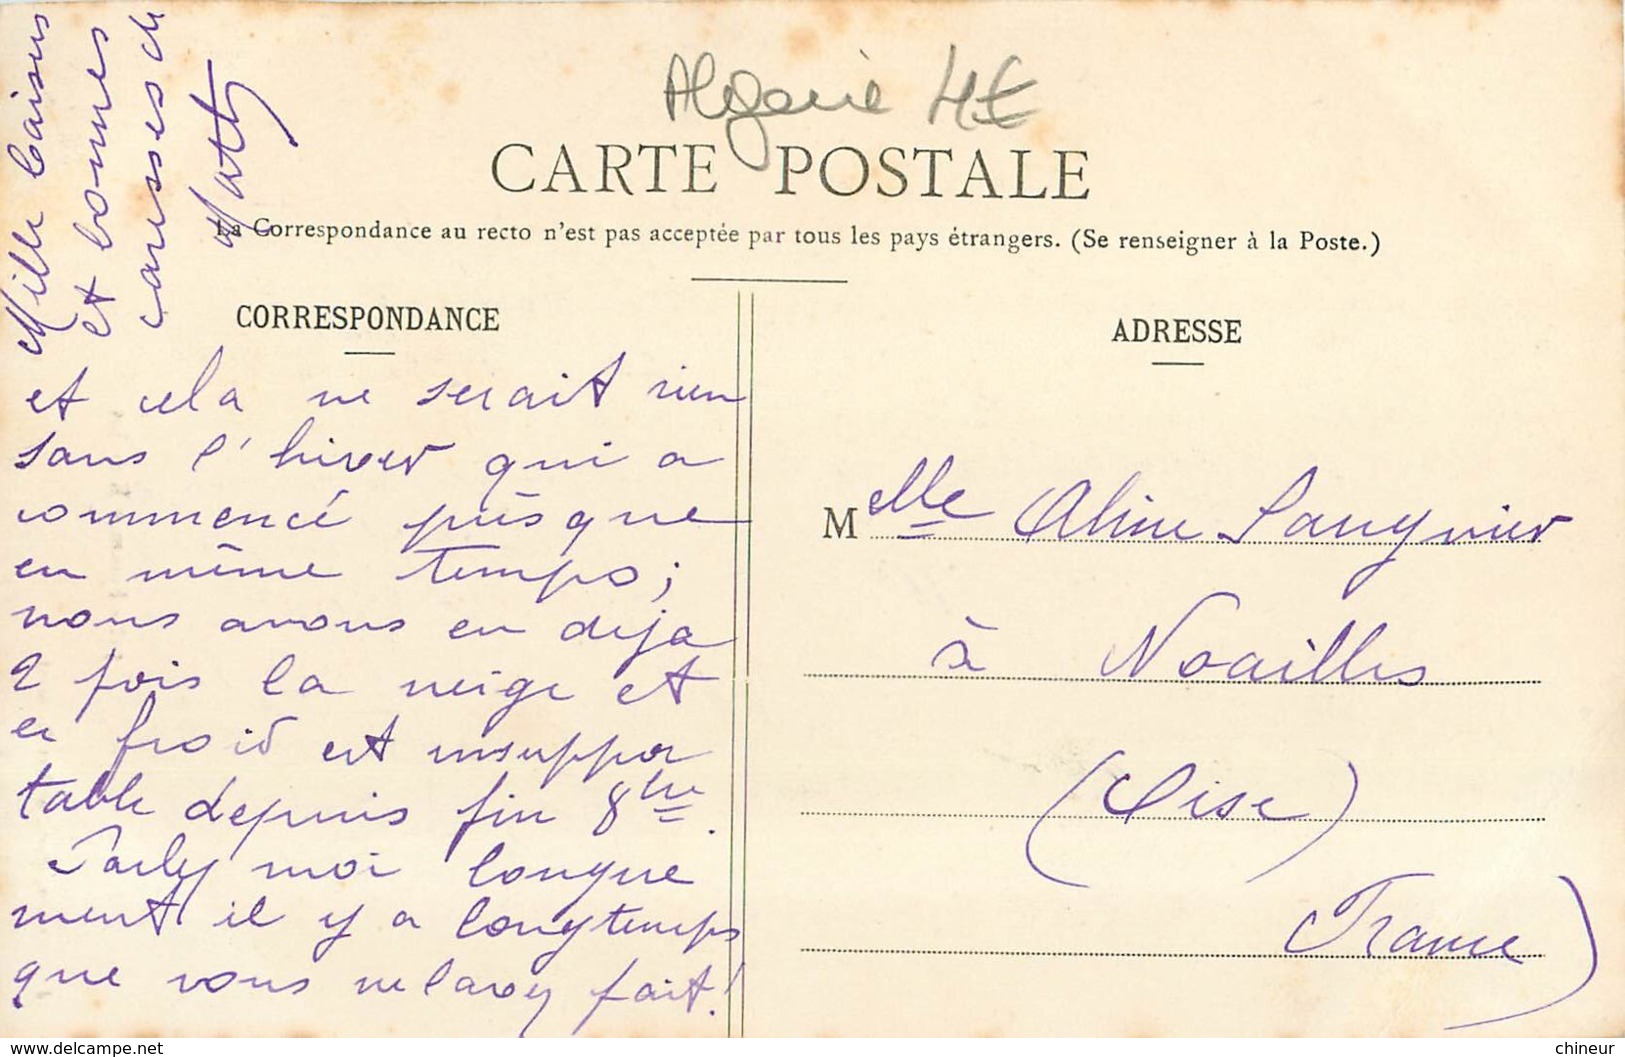 Algérie 4€
CARTE POSTALE
La Correspondance au recto n'est pas acceptée par tous les pays étrangers. (Se renseigner à la Poste.)
CORRESPONDANCE
et cela ne serait rien
sans l'hiver qui a
commencé presque
en même temps;
nous avons eu déja
2 fois la neige et
le froid est insuppor
table depuis fin 8bre.
Parlez moi longue
ment il y a longtemps
que vous ne l'avez fait!
Mille baisers
et bonnes
caresses de
ADRESSE
Melle Aline Saugnier
à Noailles
(Oise)
France)
www.delcampe.net
chineur